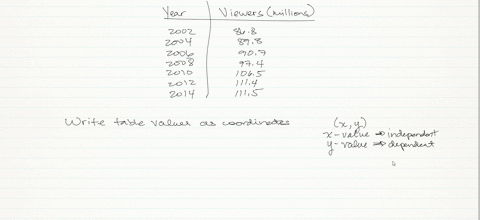 Year Viewers (millions)
2002 86.8
2004 89.8
2006 90.7
2008 97.4
2010 106.5
2012 111.4
2014 111.5
Write table values as coordinates
(x, y)
x-value ⇒ independent
y-value ⇒ dependent